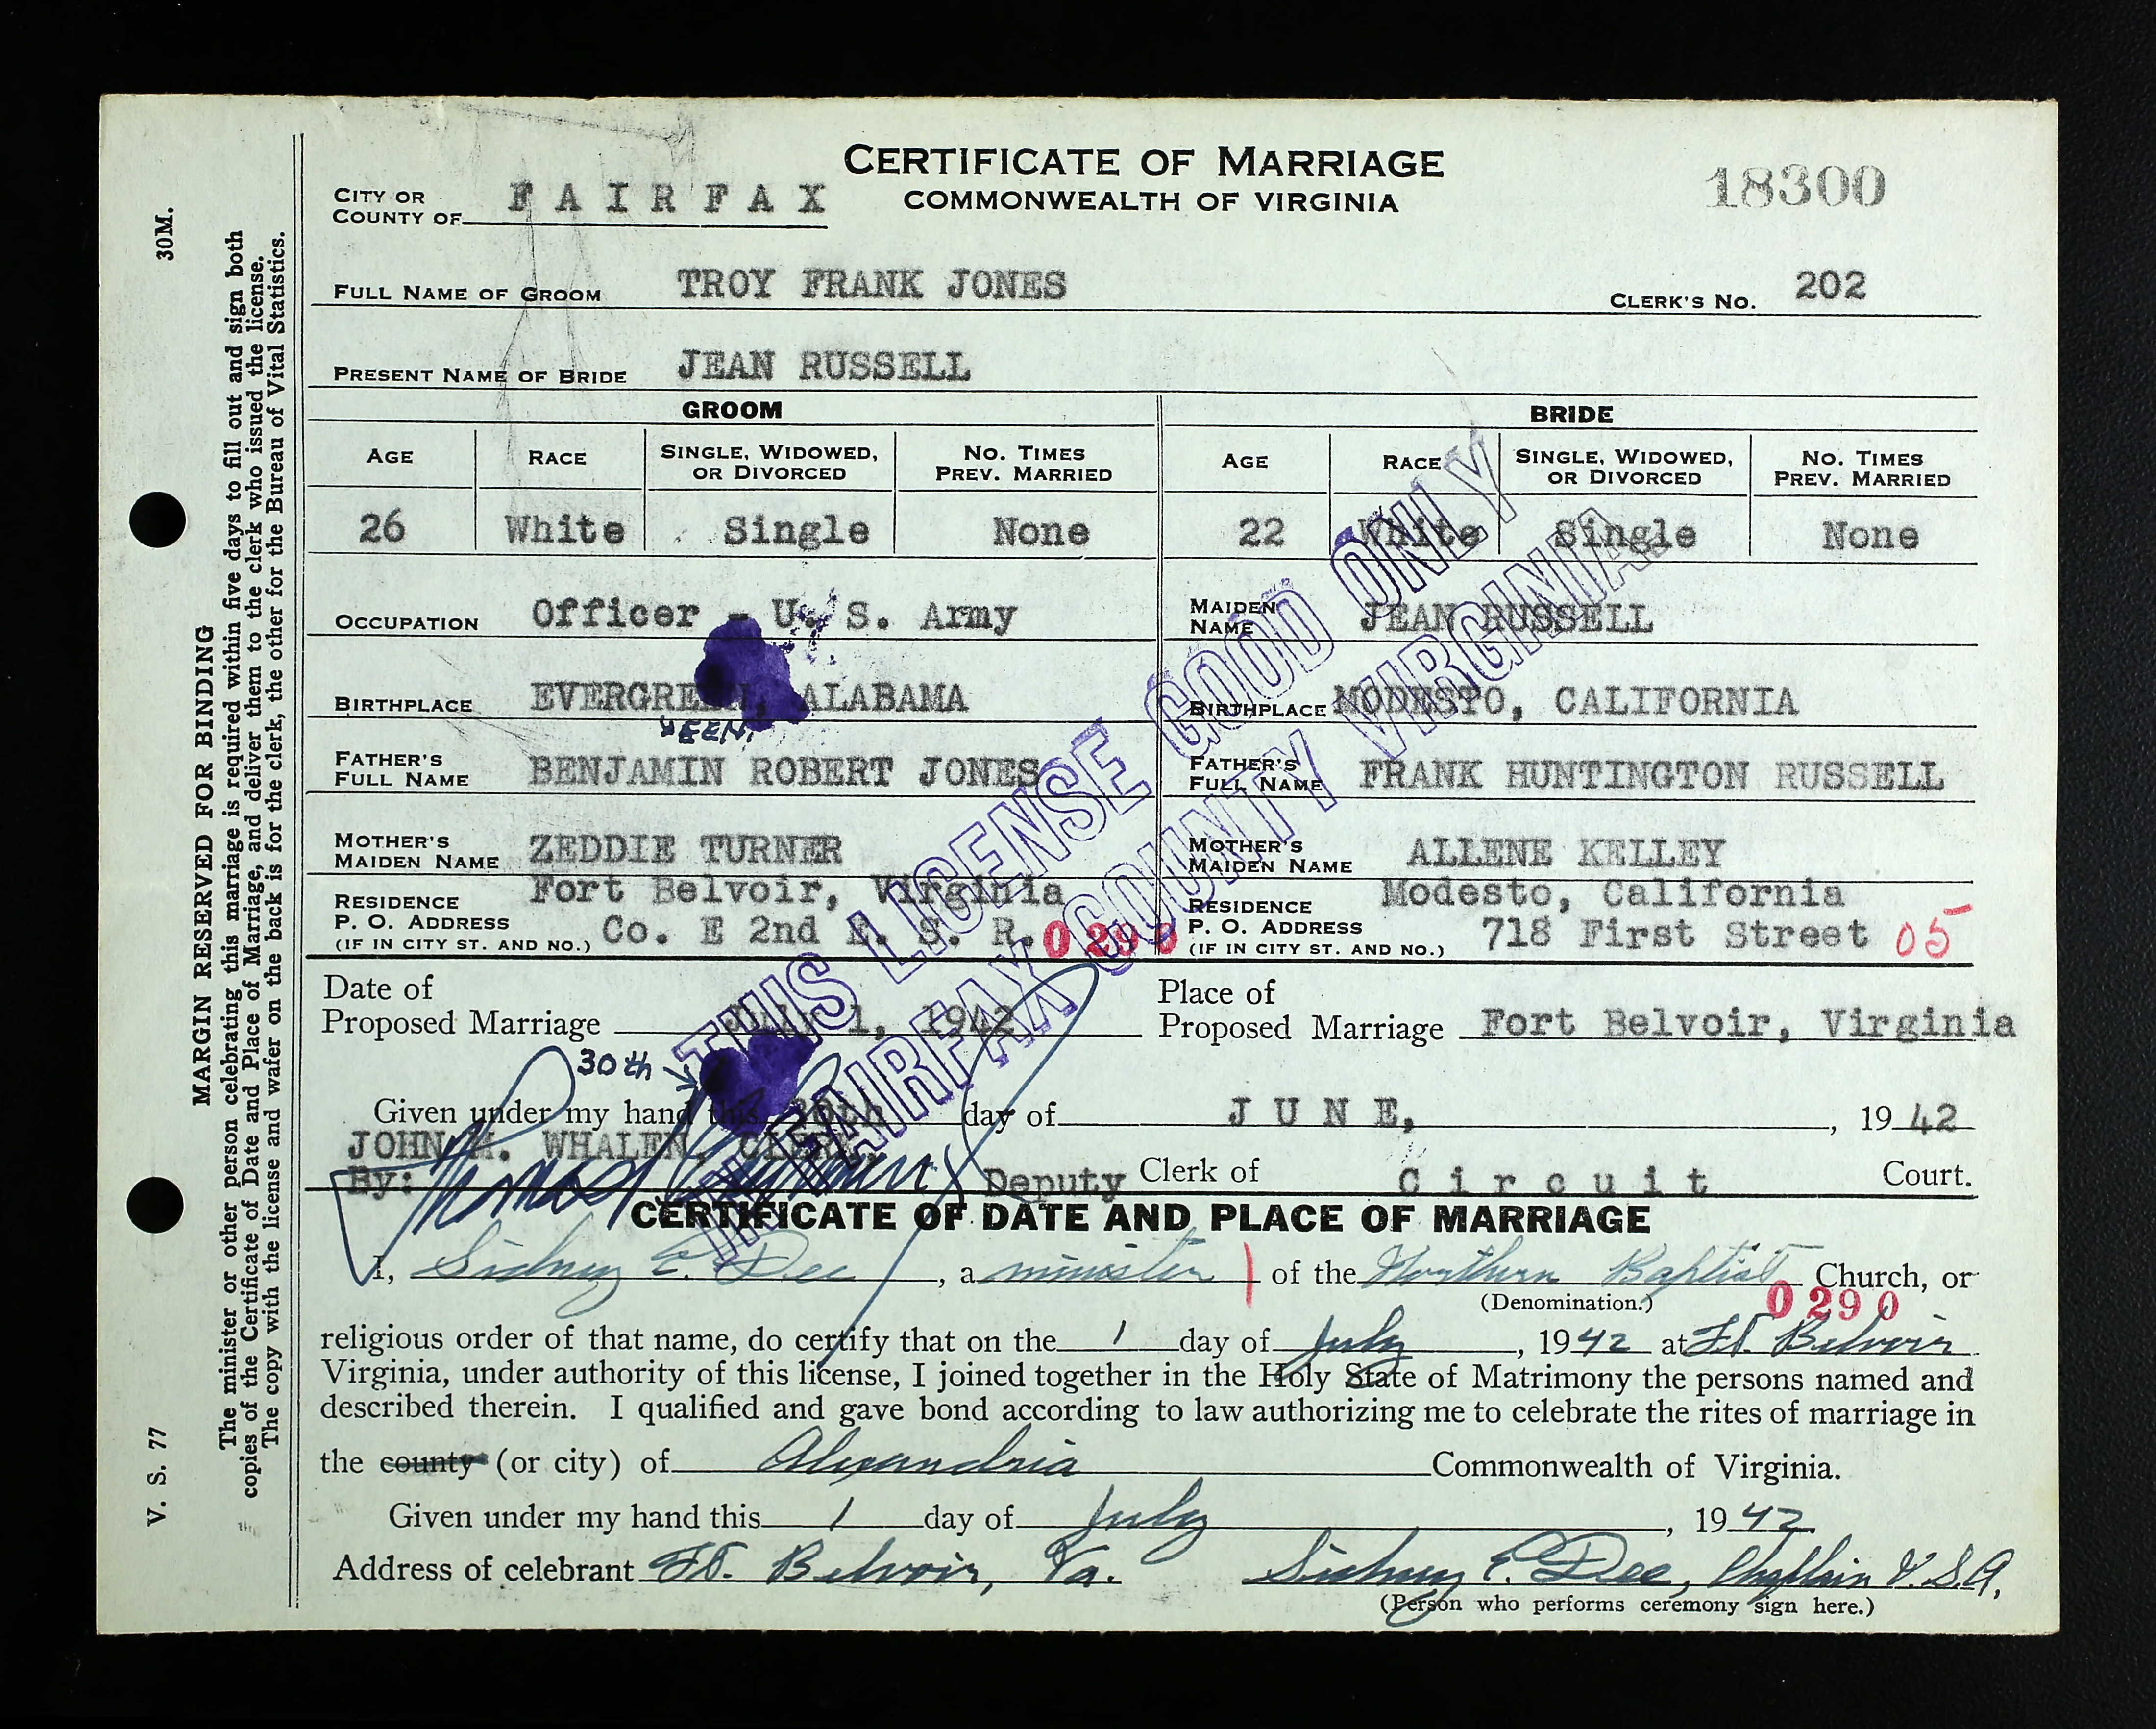 CERTIFICATE OF MARRIAGE
COMMONWEALTH OF VIRGINIA
18300
CITY OR COUNTY OF FAIRFAX
FULL NAME OF GROOM TROY FRANK JONES CLERK'S NO. 202
PRESENT NAME OF BRIDE JEAN RUSSELL
GROOM BRIDE
AGE RACE SINGLE, WIDOWED, OR DIVORCED NO. TIMES PREV. MARRIED AGE RACE SINGLE, WIDOWED, OR DIVORCED NO. TIMES PREV. MARRIED
26 White Single None 22 White Single None
OCCUPATION Officer - U. S. Army MAIDEN NAME JEAN RUSSELL
BIRTHPLACE EVERGREEN, ALABAMA BIRTHPLACE MODESTO, CALIFORNIA
EEN,
FATHER'S FULL NAME BENJAMIN ROBERT JONES FATHER'S FULL NAME FRANK HUNTINGTON RUSSELL
MOTHER'S MAIDEN NAME ZEDDIE TURNER MOTHER'S MAIDEN NAME ALLENE KELLEY
RESIDENCE Fort Belvoir, Virginia RESIDENCE Modesto, California
P. O. ADDRESS (IF IN CITY ST. AND NO.) Co. E 2nd E. S. R. 0290 P. O. ADDRESS (IF IN CITY ST. AND NO.) 718 First Street 05
Date of Proposed Marriage July 1, 1942 Place of Proposed Marriage Fort Belvoir, Virginia
30th
Given under my hand this 30th day of JUNE, 1942
JOHN M. WHALEN, CLERK,
By: Thomas Deputy Clerk of Circuit Court.
THIS LICENSE GOOD ONLY
IN FAIRFAX COUNTY VIRGINIA
CERTIFICATE OF DATE AND PLACE OF MARRIAGE
I, Sidney E. Dee, a minister of the Northern Baptist Church, or
(Denomination.) 0290
religious order of that name, do certify that on the 1 day of July, 1942 at Ft. Belvoir
Virginia, under authority of this license, I joined together in the Holy State of Matrimony the persons named and
described therein. I qualified and gave bond according to law authorizing me to celebrate the rites of marriage in
the county (or city) of Alexandria Commonwealth of Virginia.
Given under my hand this 1 day of July, 1942
Address of celebrant Ft. Belvoir, Va. Sidney E. Dee, Chaplain U.S.A.
(Person who performs ceremony sign here.)
30M.
V. S. 77
MARGIN RESERVED FOR BINDING
The minister or other person celebrating this marriage is required within five days to fill out and sign both
copies of the Certificate of Date and Place of Marriage, and deliver them to the clerk who issued the license.
The copy with the license and wafer on the back is for the clerk, the other for the Bureau of Vital Statistics.